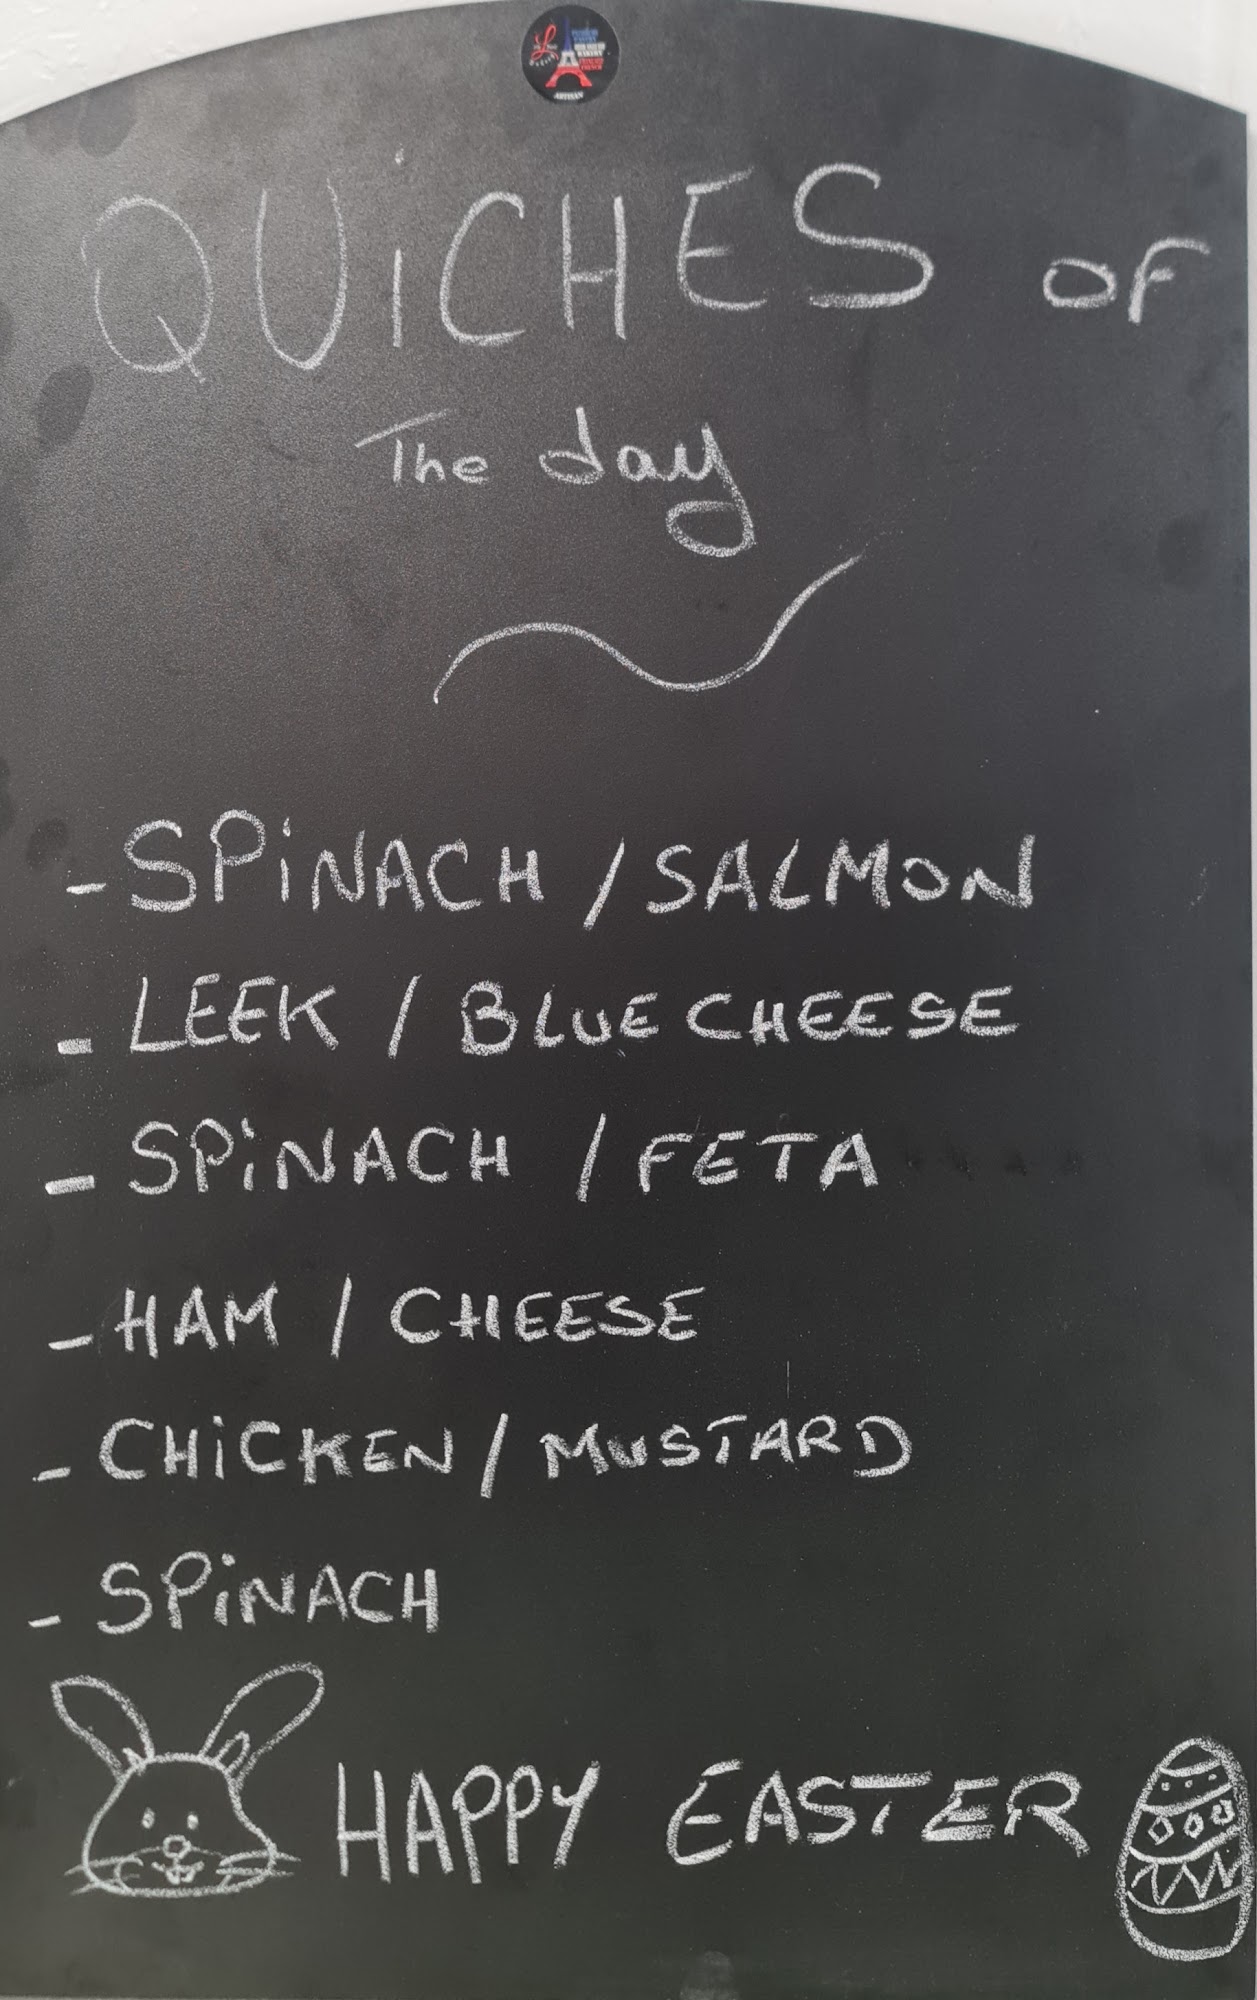 ARTISAN
QUiCHES OF
The day
- SPiNACH / SALMON
- LEEK / BLUE CHEESE
- SPiNACH / FETA
- HAM / CHEESE
- CHiCKEN / MUSTARD
- SPiNACH
HAPPY EASTER